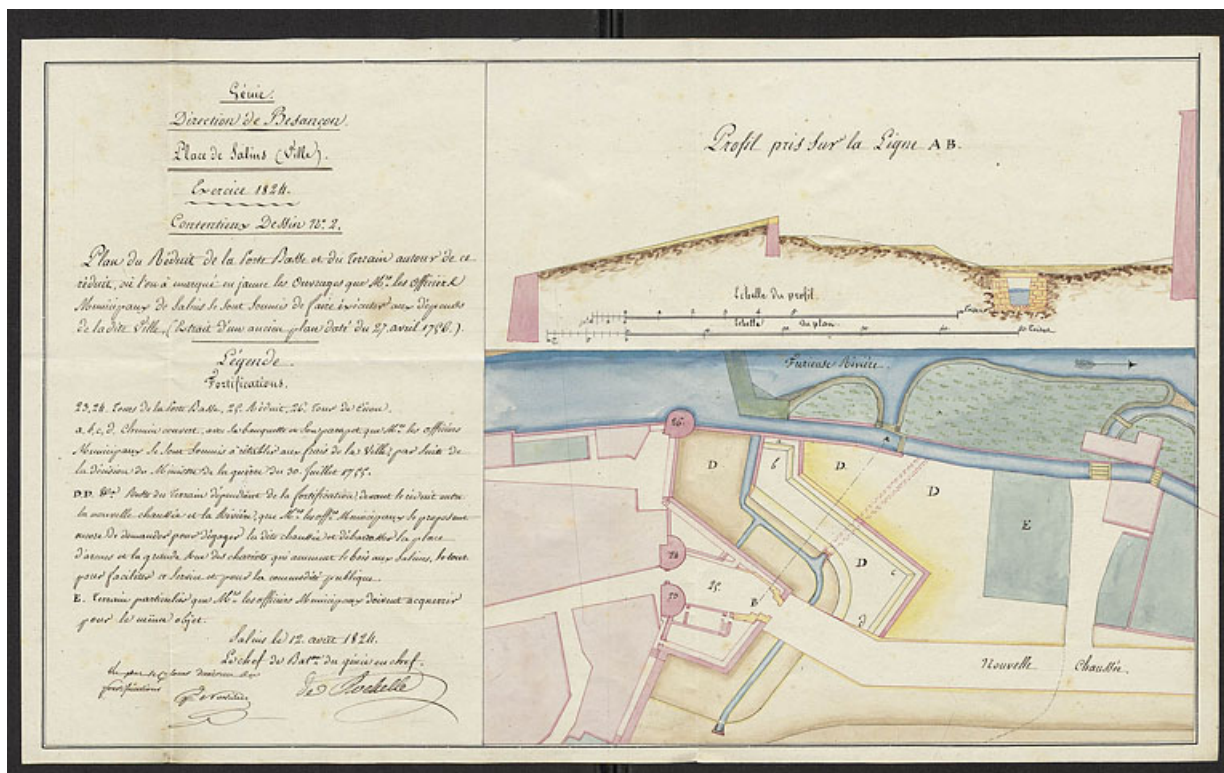 Génie.
Direction de Besançon.
Place de Salins (Ville).
Exercice 1824.
Contentieux Dessin N.º 2.
Plan du Réduit de la Porte Basse et du Terrain autour de ce
réduit, où l'on a marqué en jaune les Ouvrages que M.rs les Officiers
Municipaux de Salins se sont soumis de faire exécuter aux dépends
de la dite Ville. (Extrait d'un ancien plan daté du 27 avril 1756.)
Légende.
Fortifications.
23, 24. Tours de la Porte Basse, 25. Réduit, 26. Tour de
a, b, c, d. Chemin couvert, avec sa banquette et son parapet que M.rs les officiers
Municipaux se sont soumis à rétablir aux frais de la Ville, par suite de
la décision du Ministre de la guerre du 30 Juillet 1755.
D.D. &.ª Reste du Terrain dépendant de la fortification, devant le réduit entre
la nouvelle chaussée et la Rivière, que M.rs les off.rs Municipaux se proposent
encore de demander pour dégager la dite chaussée et débarrasser la place
d'armes et la grande rue des chariots qui amènent le bois aux Salines, le tout
pour faciliter ce Service et pour la commodité publique.
E. Terrain particulier que M.rs les officiers Municipaux doivent acquerrir
pour le même objet.
Salins le 12 avril 1824.
Le chef de Bat.on du génie en chef.
fortifications
de Rochelle
Profil pris sur la Ligne A B.
Echelle du profil.
Echelle du plan
Furieuse Rivière.
26.
D
b
D.
A
D
E
24
D
c
25.
23
B
d
Nouvelle Chaussée.